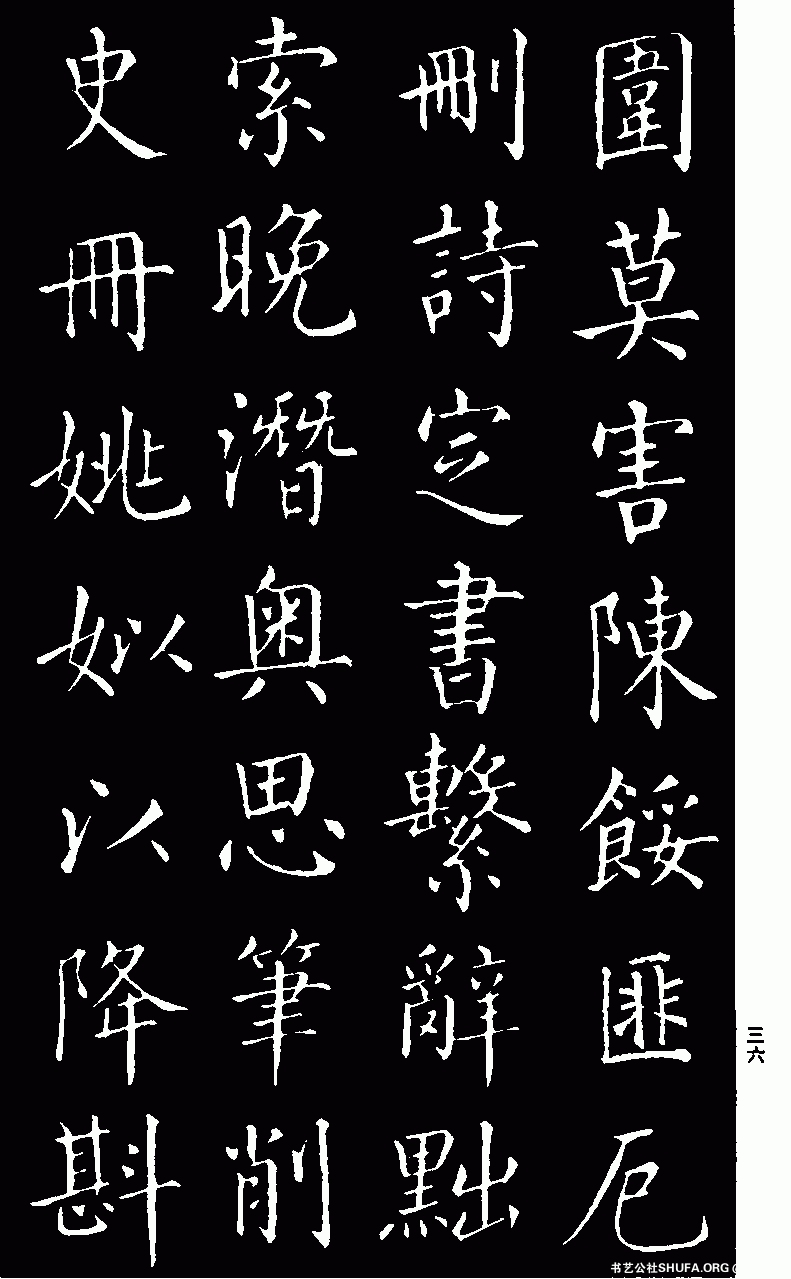 圍莫害陳餒匪厄
刪詩定書繫辭黜
索晚潛奧思筆削
史冊姚姒以降斟
三六
书艺公社SHUFA.ORG